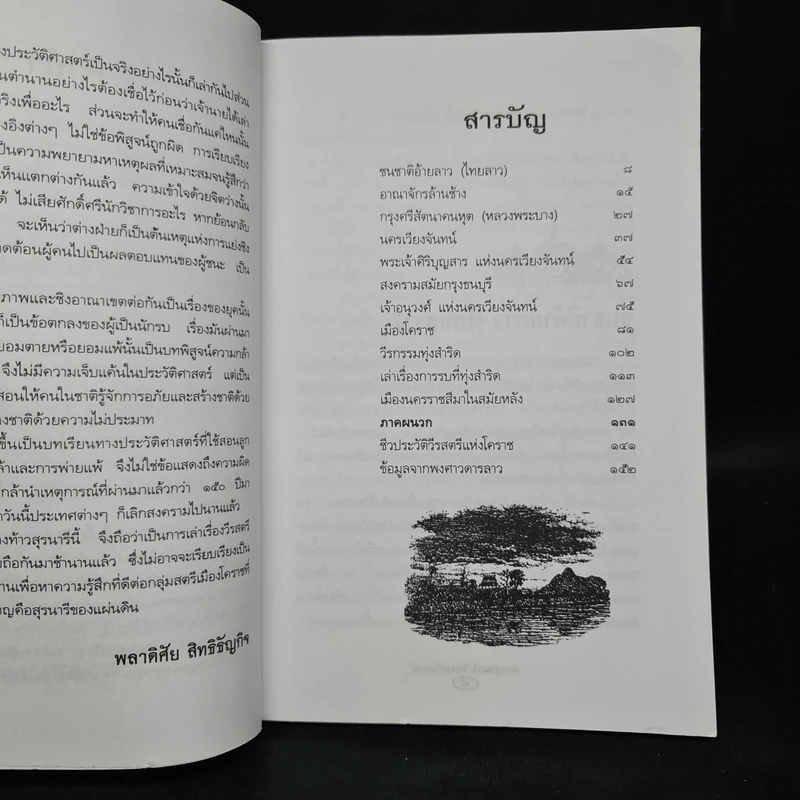 งประวัติศาสตร์เป็นจริงอย่างไรนั้นก็เล่ากันไปส่วน
นตำนานอย่างไรต้องเชื่อไว้ก่อนว่าเจ้านายได้เล่า
ริงเพื่ออะไร ส่วนจะทำให้คนเชื่อกันแค่ไหนนั้น
งอิงต่างๆ ไม่ใช่ข้อพิสูจน์ถูกผิด การเรียบเรียง
เป็นความพยายามหาเหตุผลที่เหมาะสมจนรู้สึกว่า
เห็นแตกต่างกันแล้ว ความเข้าใจด้วยจิตว่างนั้น
ด้ ไม่เสียศักดิ์ศรีนักวิชาการอะไร หากย้อนกลับ
จะเห็นว่าต่างฝ่ายก็เป็นต้นเหตุแห่งการแย่งชิง
าดต้อนผู้คนไปเป็นผลตอบแทนของผู้ชนะ เป็น
ภาพและชิงอาณาเขตต่อกันเป็นเรื่องของยุคนั้น
ก็เป็นข้อตกลงของผู้เป็นนักรบ เรื่องมันผ่านมา
ยอมตายหรือยอมแพ้นั้นเป็นบทพิสูจน์ความกล้า
จึงไม่มีความเจ็บแค้นในประวัติศาสตร์ แต่เป็น
สอนให้คนในชาติรู้จักการอภัยและสร้างชาติด้วย
างชาติด้วยความไม่ประมาท
ขึ้นเป็นบทเรียนทางประวัติศาสตร์ที่ใช้สอนลูก
ล้าและการพ่ายแพ้ จึงไม่ใช่ข้อแสดงถึงความผิด
กล้านำเหตุการณ์ที่ผ่านมาแล้วกว่า ๑๕๐ ปีมา
าวันนี้ประเทศต่างๆ ก็เลิกสงครามไปนานแล้ว
องท้าวสุรนารีนี้ จึงถือว่าเป็นการเล่าเรื่องวีรสตรี
ถือกันมาช้านานแล้ว ซึ่งไม่อาจจะเรียบเรียงเป็น
านเพื่อหาความรู้สึกที่ดีต่อกลุ่มสตรีเมืองโคราชที่
าญคือสุรนารีของแผ่นดิน
พลาดิศัย สิทธิธัญกิจ
สารบัญ
ชนชาติอ้ายลาว (ไทยลาว) ๘
อาณาจักรล้านช้าง ๑๕
กรุงศรีสัตนาคนหุต (หลวงพระบาง) ๒๗
นครเวียงจันทน์ ๓๗
พระเจ้าศิริบุญสาร แห่งนครเวียงจันทน์ ๕๔
สงครามสมัยกรุงธนบุรี ๖๗
เจ้าอนุวงศ์ แห่งนครเวียงจันทน์ ๗๕
เมืองโคราช ๘๑
วีรกรรมทุ่งสำริด ๑๐๒
เล่าเรื่องการรบที่ทุ่งสำริด ๑๑๓
เมืองนครราชสีมาในสมัยหลัง ๑๒๗
ภาคผนวก ๑๓๑
ชีวประวัติวีรสตรีแห่งโคราช ๑๔๑
ข้อมูลจากพงศาวดารลาว ๑๕๒